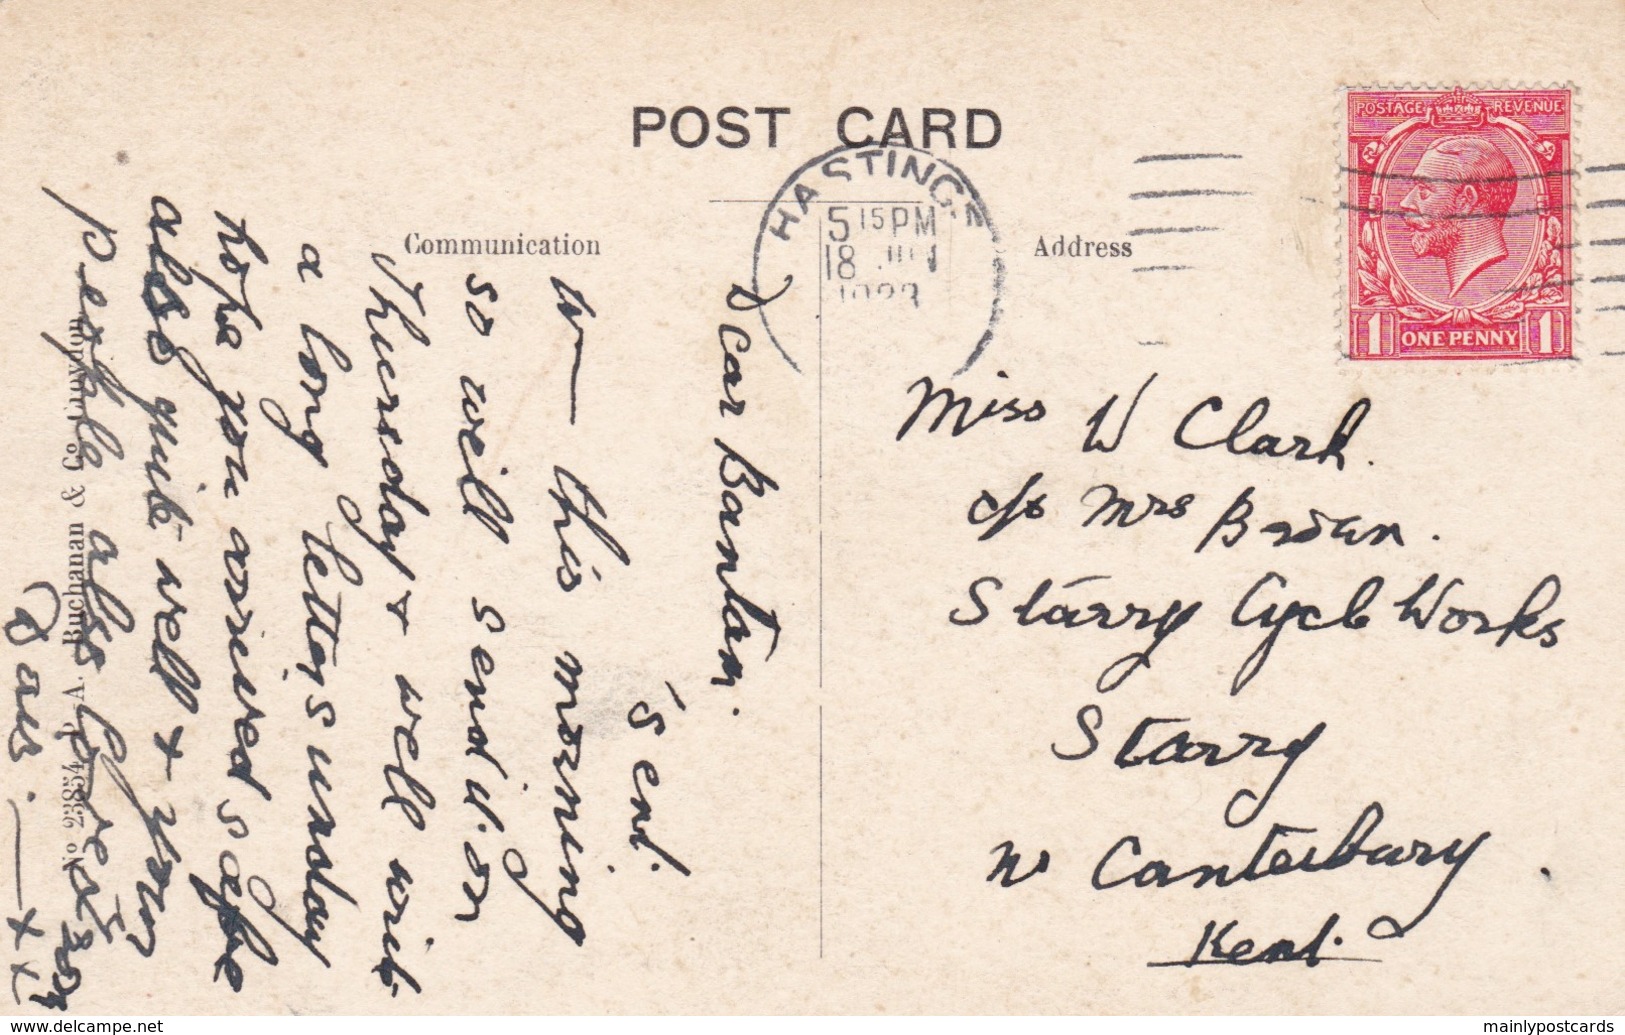 POST CARD
POSTAGE REVENUE
1 ONE PENNY 1
HASTINGS
5 15 PM
18 JUN
1923
Communication
Address
Dear Bantam.
'send.
this morning
so will send it on
Thursday & will write
a long letter sunday
hope you arrived safe
also quite well & your
people also
Miss W Clark.
c/o Mrs Brown.
Starry Cycle Works
Starry
Nr Canterbury
Kent.
No 23854 P A. Buchanan & Co. Croydon
www.delcampe.net
mainlypostcards